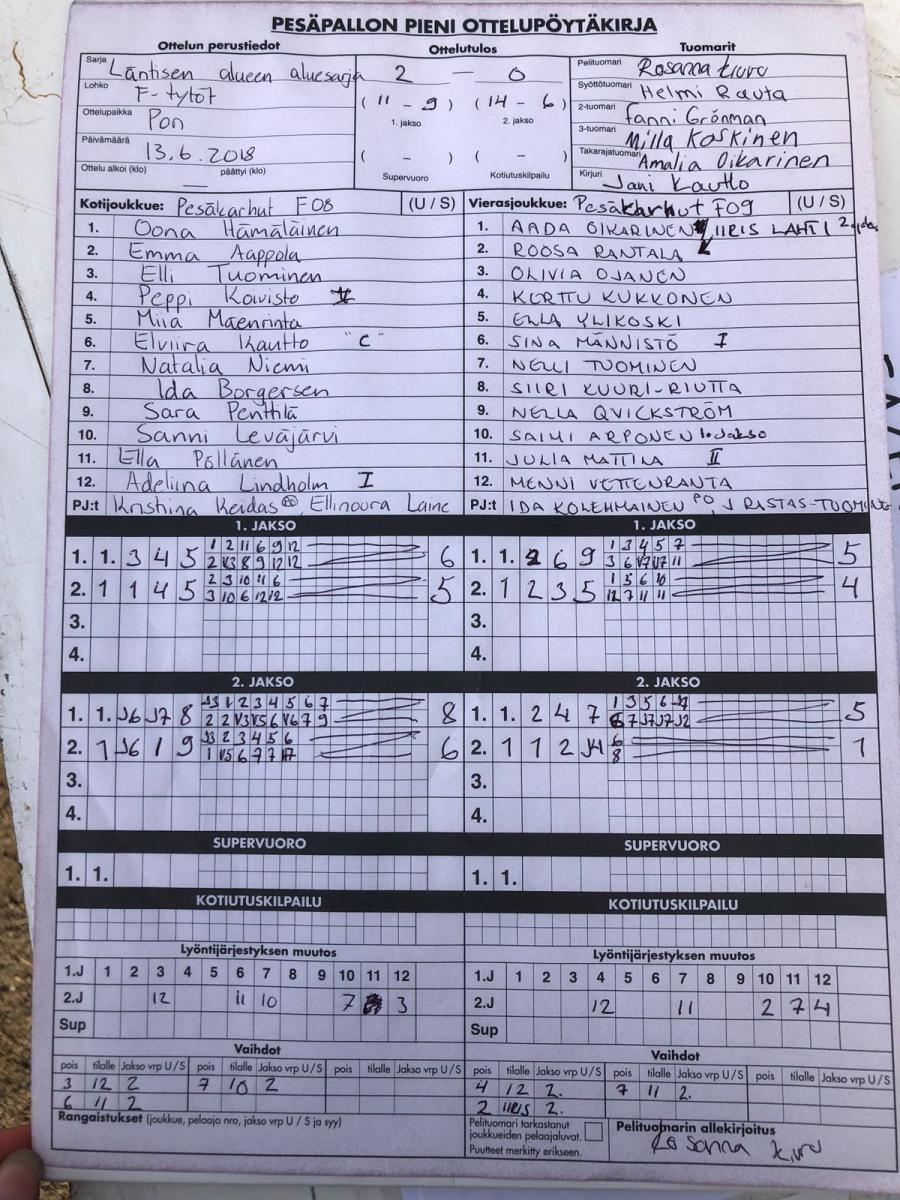 PESÄPALLON PIENI OTTELUPÖYTÄKIRJA
Ottelun perustiedot Ottelutulos Tuomarit
Sarja Läntisen alueen aluesarja
Lohko F-tytöt
Ottelupaikka Pori
Päivämäärä 13.6.2018
Ottelu alkoi (klo) — päättyi (klo)
2 — 0
(11 - 9) (14 - 6)
1. jakso 2. jakso
( - ) ( - )
Supervuoro Kotiutuskilpailu
Pelituomari Rosanna Kiuru
Syöttötuomari Helmi Rauta
2-tuomari Fanni Grönman
3-tuomari Milla Koskinen
Takarajatuomari Amalia Oikarinen
Kirjuri Jani Kautto
Kotijoukkue: Pesäkarhut F08 (U / S)
1. Oona Hämäläinen
2. Emma Aappola
3. Elli Tuominen
4. Peppi Koivisto
5. Miia Mäenrinta
6. Elviira Kautto "C"
7. Natalia Niemi
8. Ida Borgersen
9. Sara Penttilä
10. Sanni Leväjärvi
11. Ella Pöllänen
12. Adeliina Lindholm I
PJ:t Kristiina Keidas Ellinoora Laine
Vierasjoukkue: Pesäkarhut F09 (U / S)
1. AADA OIKARINEN IIRIS LAHTI
2. ROOSA RANTALA
3. OLIVIA OJANEN
4. KERTTU KUKKONEN
5. ELLA YLIKOSKI
6. SINA MÄNNISTÖ I
7. NELLI TUOMINEN
8. SIIRI KUURI-RIUTTA
9. NELLA QVICKSTRÖM
10. SAIMI ARPONEN 1.jakso
11. JULIA MATTILA II
12. MENNI VETTENRANTA
PJ:t IDA KOLEHMAINEN PO, J RISTAS-TUOMINEN
1. JAKSO
1. 1. 3 4 5 1 2 11 6 9 12 6
2 V3 8 9 12 12
2. 1 1 4 5 2 3 10 11 6 5
3 10 6 12 12
3.
4.
1. JAKSO
1. 1. 2 6 9 1 3 4 5 7 5
3 6 V7 V7 11
2. 1 2 3 5 1 5 6 10 4
12 7 11 11
3.
4.
2. JAKSO
1. 1. J6 J7 8 J3 1 2 3 4 5 6 7 8
2 2 V3 V5 6 V6 7 9
2. 1 J6 1 9 J3 2 3 4 5 6 6
1 V5 6 7 7
3.
4.
2. JAKSO
1. 1. 2 4 7 1 3 5 6 5
7 J7 J7 J2
2. 1 1 2 J4 6 1
8
3.
4.
SUPERVUORO SUPERVUORO
1. 1. 1. 1.
KOTIUTUSKILPAILU KOTIUTUSKILPAILU
Lyöntijärjestyksen muutos
1.J 1 2 3 4 5 6 7 8 9 10 11 12
2.J 12 11 10 7 3
Sup
Lyöntijärjestyksen muutos
1.J 1 2 3 4 5 6 7 8 9 10 11 12
2.J 12 11 2 7 4
Sup
Vaihdot
pois tilalle Jakso vrp U / S pois tilalle Jakso vrp U / S pois tilalle Jakso vrp U / S
3 12 2 7 10 2
6 11 2
Vaihdot
pois tilalle Jakso vrp U / S pois tilalle Jakso vrp U / S pois tilalle Jakso vrp U / S
4 12 2. 7 11 2.
2 IIRIS 2.
Rangaistukset (joukkue, pelaaja nro, jakso vrp U / S ja syy)
Pelituomari tarkastanut
joukkueiden pelaajaluvat.
Puutteet merkitty erikseen.
Pelituomarin allekirjoitus
Rosanna Kiuru